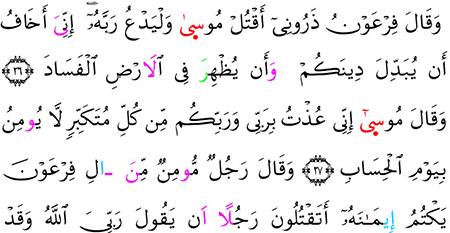 وَقَالَ فِرْعَوْنُ ذَرُونِىٓ أَقْتُلْ مُوسىٰ وَلْيَدْعُ رَبَّهُۥٓ إِنِّىَ أَخَافُ
أَن يُبَدِّلَ دِينَكُمْ وَأَن يُظْهِرَ فِى اَلَارْضِ اِلْفَسَادَ ۝٢٦
وَقَالَ مُوسىٰٓ إِنِّى عُذْتُ بِرَبِّى وَرَبِّكُم مِّن كُلِّ مُتَكَبِّرٍ لَّا يُومِنُ
بِيَوْمِ اِلْحِسَابِ ۝٢٧ وَقَالَ رَجُلٌ مُّومِنٌ مِّنَ ـَالِ فِرْعَوْنَ
يَكْتُمُ إِيمَـٰنَهُۥٓ أَتَقْتُلُونَ رَجُلًا اَن يَقُولَ رَبِّىَ اَللَّهُ وَقَدْ